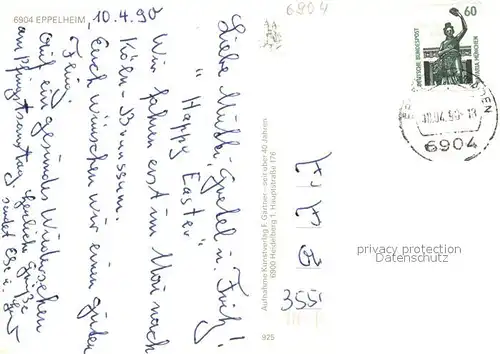 6904 EPPELHEIM
10.4.90
Liebe Mutti, Gretel u. Fritz!
"Happy Easter"
Wir fahren erst im Mai nach
Köln-Brunssum.
Euch wünschen wir einen guten
Auf ein gesundes Wiedersehen
am Pfingstsamstag, herzliche Grüße
sendet Else u.
925
Aufnahme Kunstverlag F. Gärtner - seit über 40 Jahren
6900 Heidelberg 1, Hauptstraße 176
6904
60
DEUTSCHE BUNDESPOST
BAVARIA MÜNCHEN
10.04.90-18
6904
355
privacy protection
Datenschutz